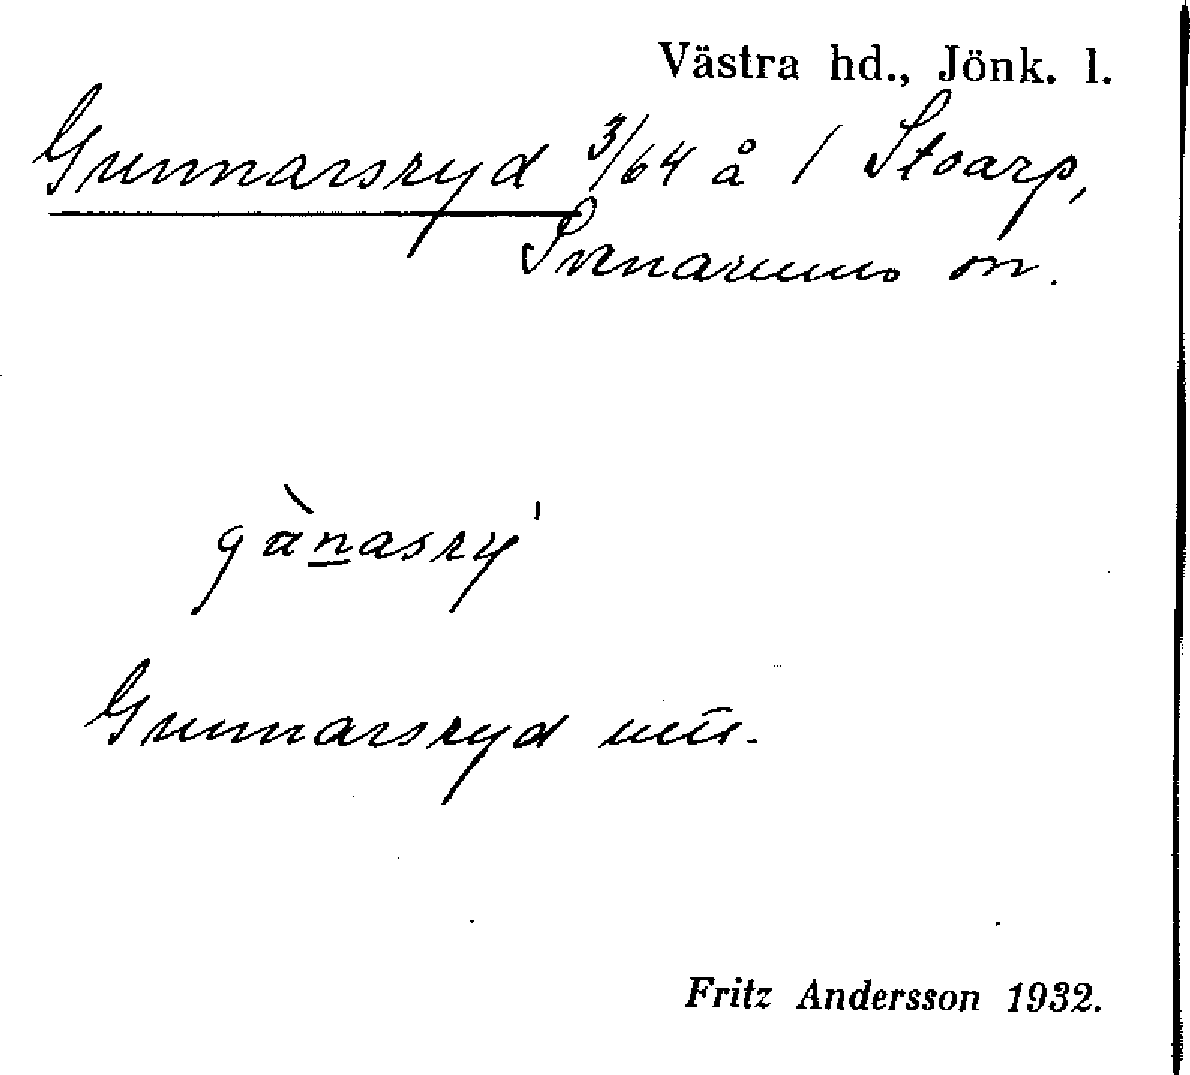 Västra hd., Jönk. l.
Gunnarsryd 3/64 å 1 Stoarp,
Svenarums sn.
gànasry'
Gunnarsryd
Fritz Andersson 1932.